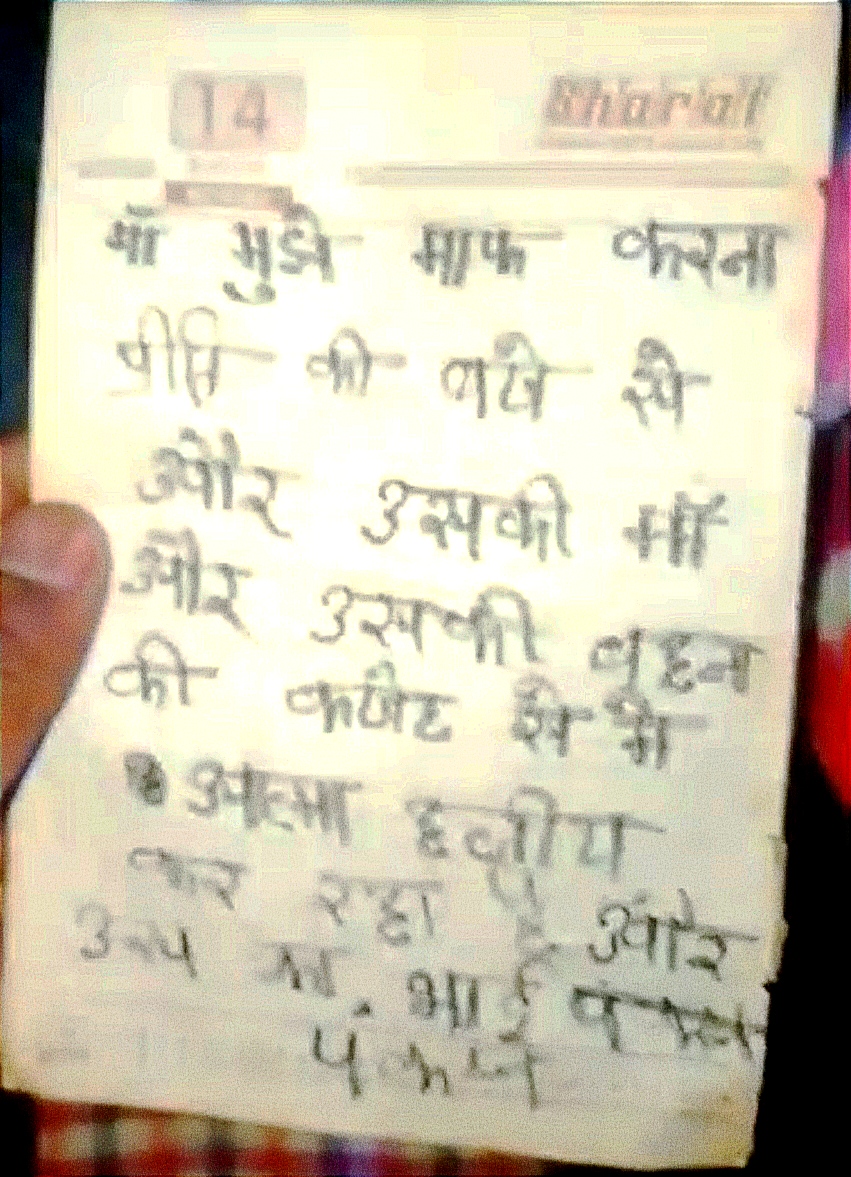 14 Bharat
माँ मुझे माफ करना
प्रीति की वजे से
और उसकी माँ
और उसकी बहन
की वजेह से मे
आत्मा हत्तीय
कर रहा हूँ और
उस का भाई
पंकज